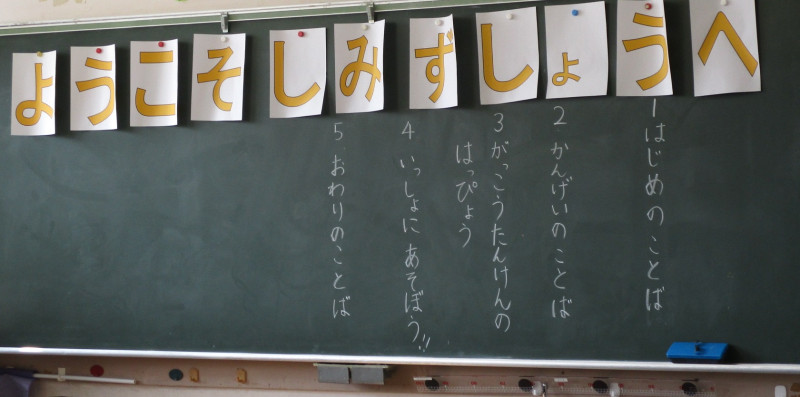 ようこそしみずしょうへ
1 はじめのことば
2 かんげいのことば
3 がっこうたんけんの
はっぴょう
4 いっしょに あそぼう!!
5 おわりのことば